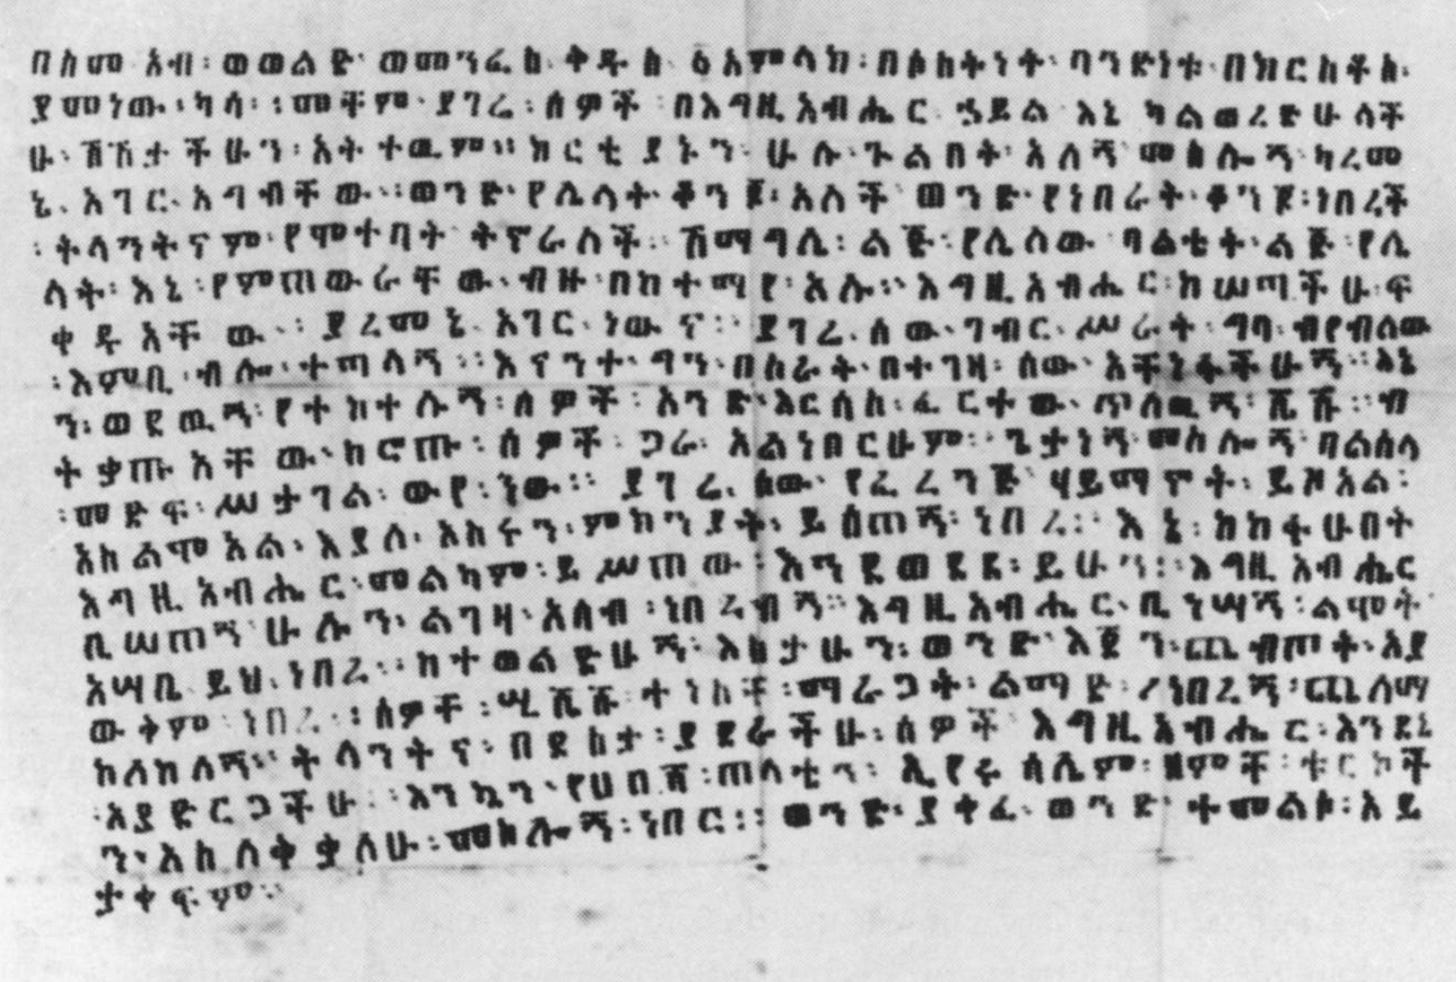 በስመ አብ፡ ወወልድ፡ ወመንፈስ ቅዱስ ፩አምላክ፡ በሶስትነት፡ ባንድነቱ በክርስቶስ፡
ያመነው፡ ካሳ፡ ፡መቸም፡ ያገሬ፡ ሰዎች ፡በእግዚአብሔር ኃይል እኔ ካልወረድሁላች
ሁ፡ ሽሽታችሁን፡ አትተዉም። ክርቲያኑን፡ ሁሉ፡ ጉልበት፡ አለኝ መስሎኝ፡ ካረመ
ኔ፡ አገር፡ አግብቸው፡ ፡ወንድ፡ የሌላት፡ ቆንጆ፡ አለች ወንድ፡ የነበራት፡ ቆንጆ፡ ነበረች
፡ትላንትና ም፡ የሞተባት ትኖራለች። ሽማግሌ፡ ልጅ፡ የሌለው ባልቴት፡ ልጅ፡ የሌ
ላት፡ እኔ፡ የምጠውራቸው፡ ብዙ፡ በከተማየ፡ አሉ። እግዚአብሔር፡ ከሠጣችሁ፡ ፍ
ቀዱአቸው። ያረመኔ፡ አገር፡ ነውና። ያገሬ፡ ሰው፡ ገብር፡ ሥራት፡ ግባ፡ ብየብለው
፡እምቢ፡ ብሎ፡ ተጣላኝ። እናንተ፡ ግን፡ በስራት፡ በተገዛ፡ ሰው፡ አቸነፋችሁኝ። እኔ
ን፡ ወደዉኝ፡ የተከተሉኝ፡ ሰዎች፡ አንድ እርሰስ፡ ፈርተው፡ ጥለዉኝ፡ ሼሹ። ብ
ትቃጡአቸው፡ ከሮጡ፡ ሰዎች፡ ጋራ፡ አልነበርሁም። ጌታነኝ መስሎኝ ባልሰላ
፡መድፍ፡ ሥታገል፡ ውየ፡ ነው። ያገሬ፡ ሰው፡ የፈረንጅ ሃይማኖት፡ ይዞአል፡
አስልሞአል፡ እያለ፡ አስሩን፡ ምክንያት፡ ይሰጠኝ፡ ነበረ። እኔ፡ ከከፋሁበት
እግዚአብሔር፡ መልካም፡ ይሥጠው፡ እንደወደደ፡ ይሁን። እግዚአብሔር
ቢሠጠኝ ሁሉን፡ ልገዛ፡ አሳብ፡ ነበረብኝ። እግዚአብሔር፡ ቢነሣኝ፡ ልሞት
አሣቤ ይህ፡ ነበረ። ከተወልድሁኝ፡ እስታሁን፡ ወንድ እጀን፡ ጨብጦት፡ አያ
ውቅም፡ ነበረ። ሰዎች፡ ሢሼሹ ተነስቸ፡ ማራጋት፡ ልማድ፡ ነበረኝ፡ ጨለማ
ከለከለኝ። ትላንትና፡ በደስታ፡ ያደራችሁ፡ ሰዎች እግዚአብሔር፡ እንደኔ
፡አያድርጋችሁ። እንኳን፡ የሀበሻ፡ ጠላቲን፡ ኢየሩሳሌም፡ ዘምቸ፡ ቱርኮች
ን፡ አስለቅቃለሁ፡ መስሎኝ፡ ነበር። ወንድ፡ ያቀፈ፡ ወንድ፡ ተመልሶ፡ አይ
ታቀፍም።